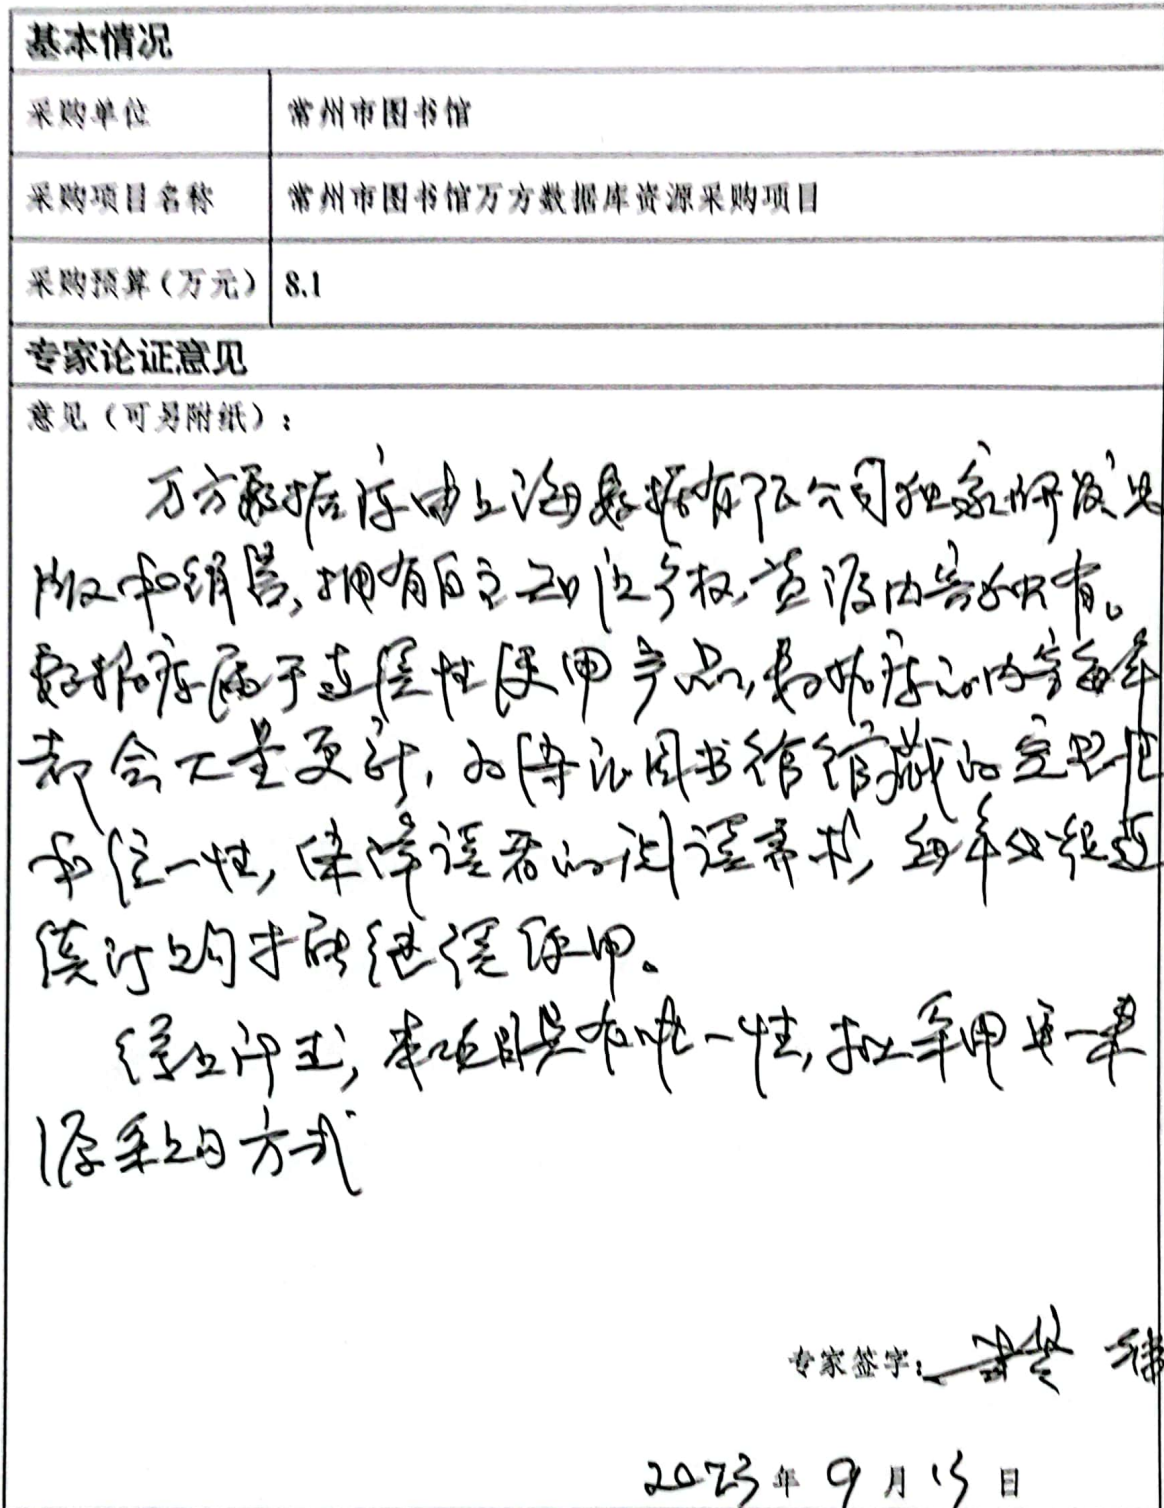 基本情况
采购单位 常州市图书馆
采购项目名称 常州市图书馆万方数据库资源采购项目
采购预算（万元） 8.1
专家论证意见
意见（可另附纸）：
万方数据库由上海数据有限公司独家研发出
版和销售，拥有自主知识产权，资源内容独有。
数据库属于连续性使用产品，数据库的内容每年
都会大量更新，为保证图书馆馆藏的完整性
和统一性，保障读者的阅读需求，每年必须连
续订购才能继续使用。
综上所述，本项目具有唯一性，拟采用单一来
源采购方式
专家签字：
2023年9月13日